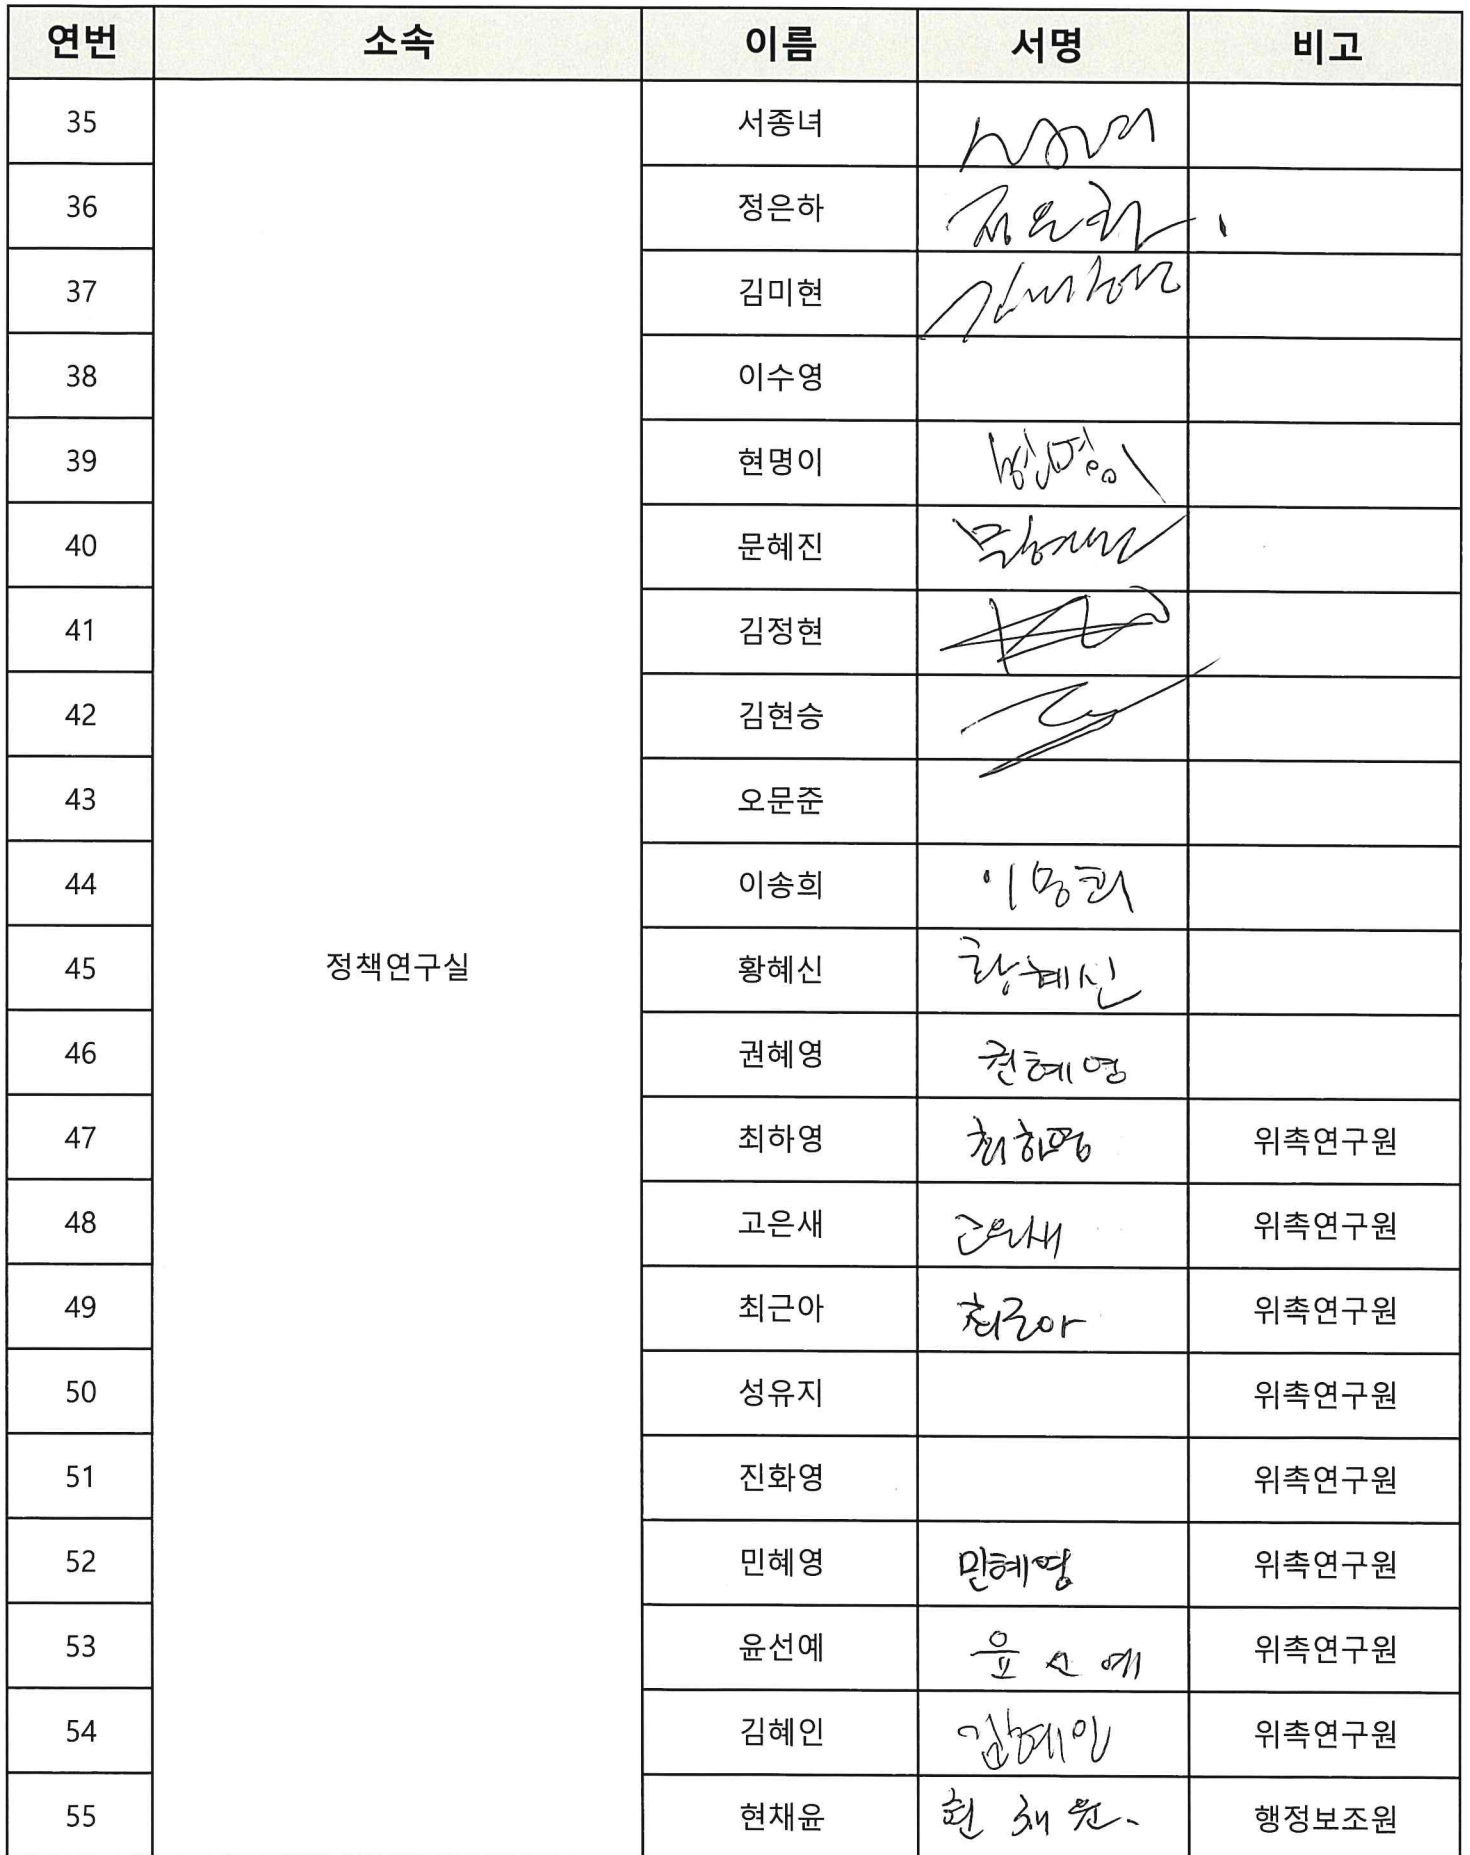 연번 소속 이름 서명 비고
35 서종녀
36 정은하 정은하
37 김미현 김미현
38 이수영
39 현명이 현명이
40 문혜진 문혜진
41 김정현
42 김현승
43 오문준
44 이송희 이송희
45 정책연구실 황혜신 황혜신
46 권혜영 권혜영
47 최하영 최하영 위촉연구원
48 고은새 고은새 위촉연구원
49 최근아 최근아 위촉연구원
50 성유지 위촉연구원
51 진화영 위촉연구원
52 민혜영 민혜영 위촉연구원
53 윤선예 윤선예 위촉연구원
54 김혜인 김혜인 위촉연구원
55 현채윤 현채윤. 행정보조원